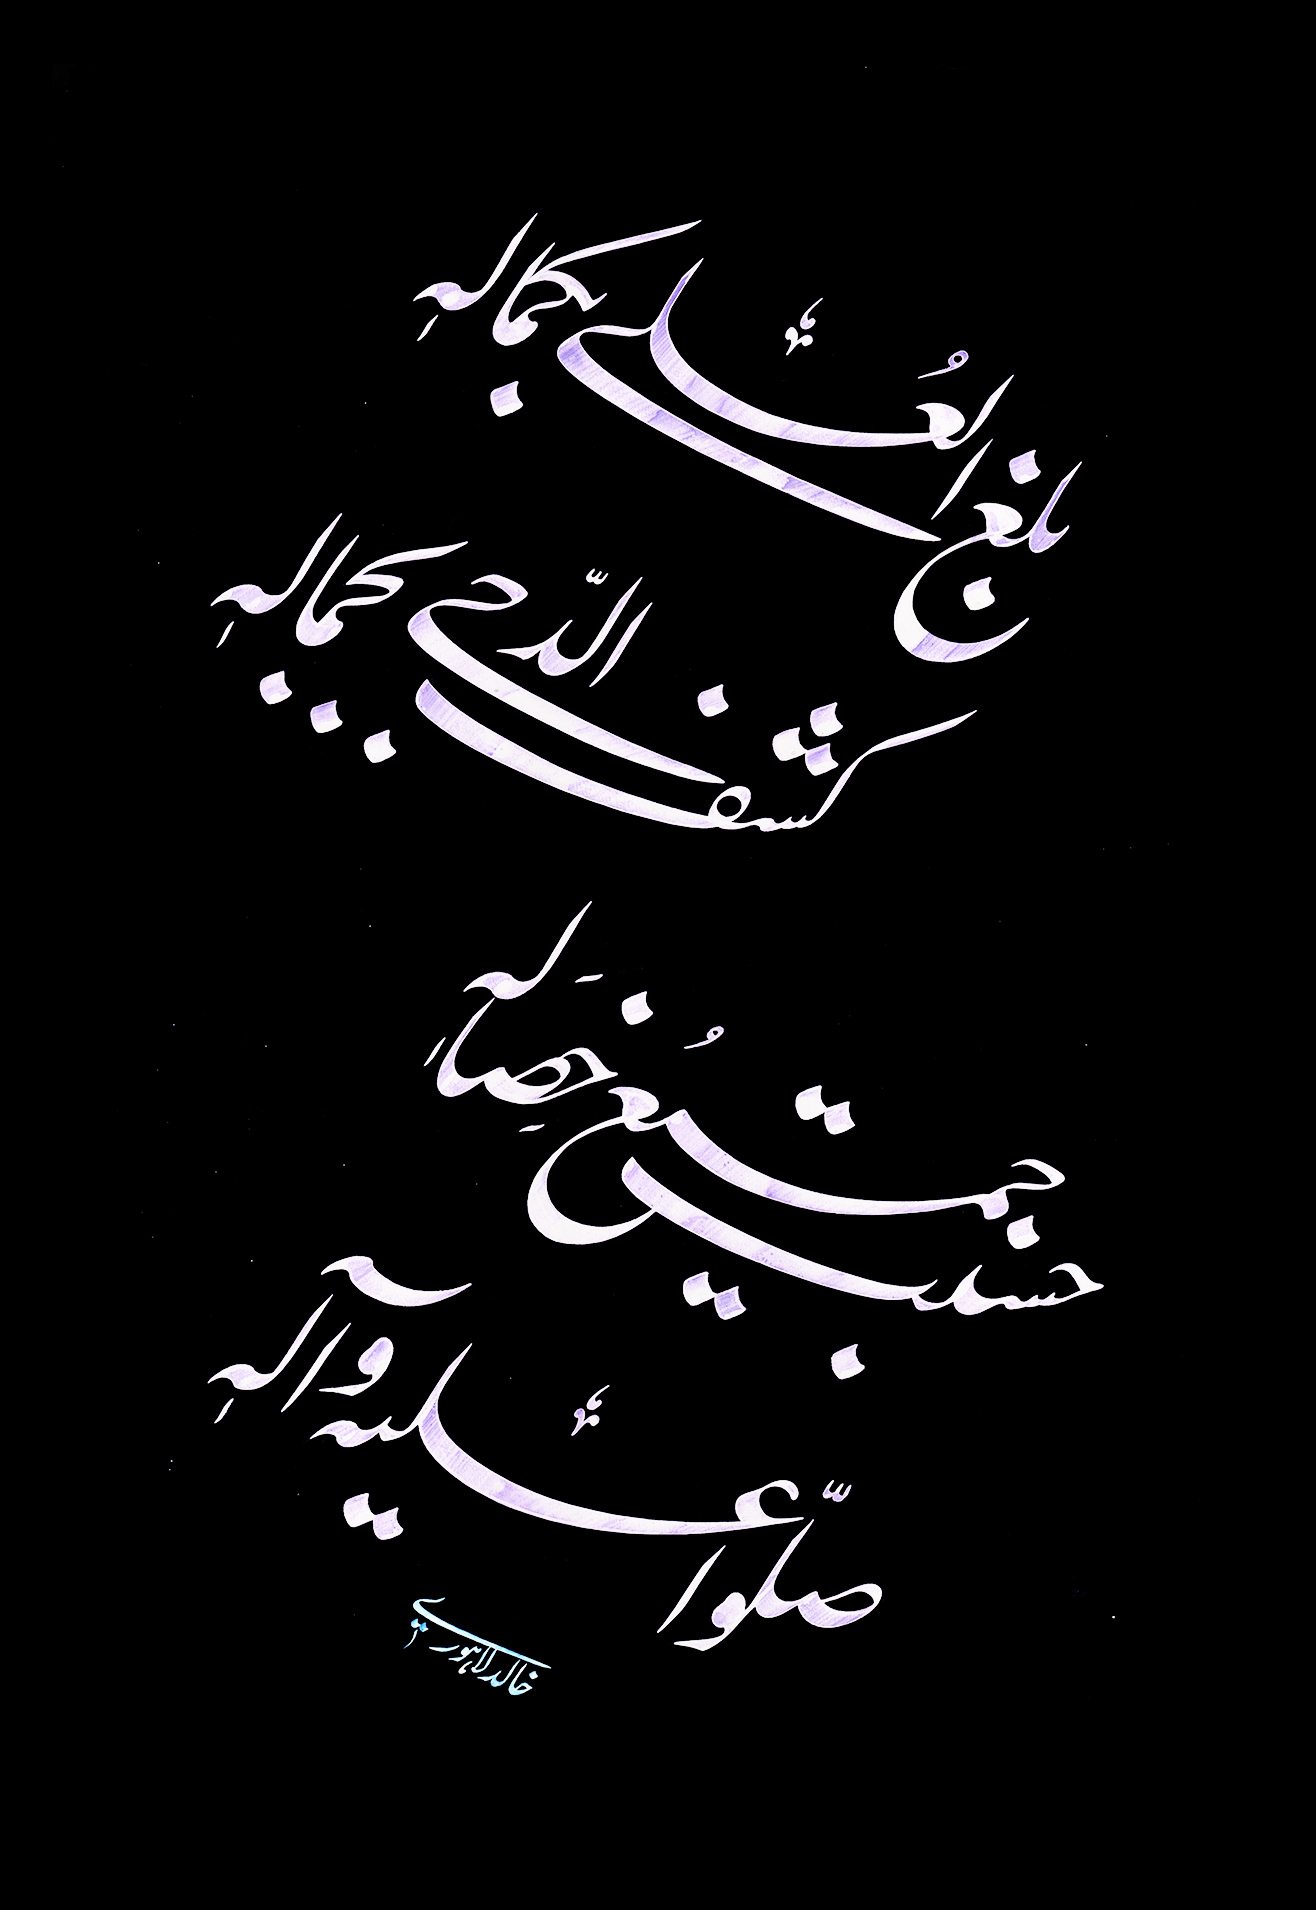 بلغ العُلیٰ بکمالہٖ
کشف الدّجیٰ بجمالہٖ
حسنت جمیعُ خِصَالہٖ
صلّوا علیہ وآلہٖ
خالد لاہوری